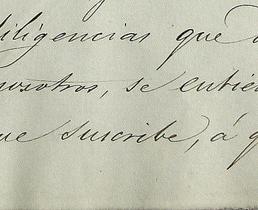 diligencias que
nosotros, se entién
que suscribe, á q